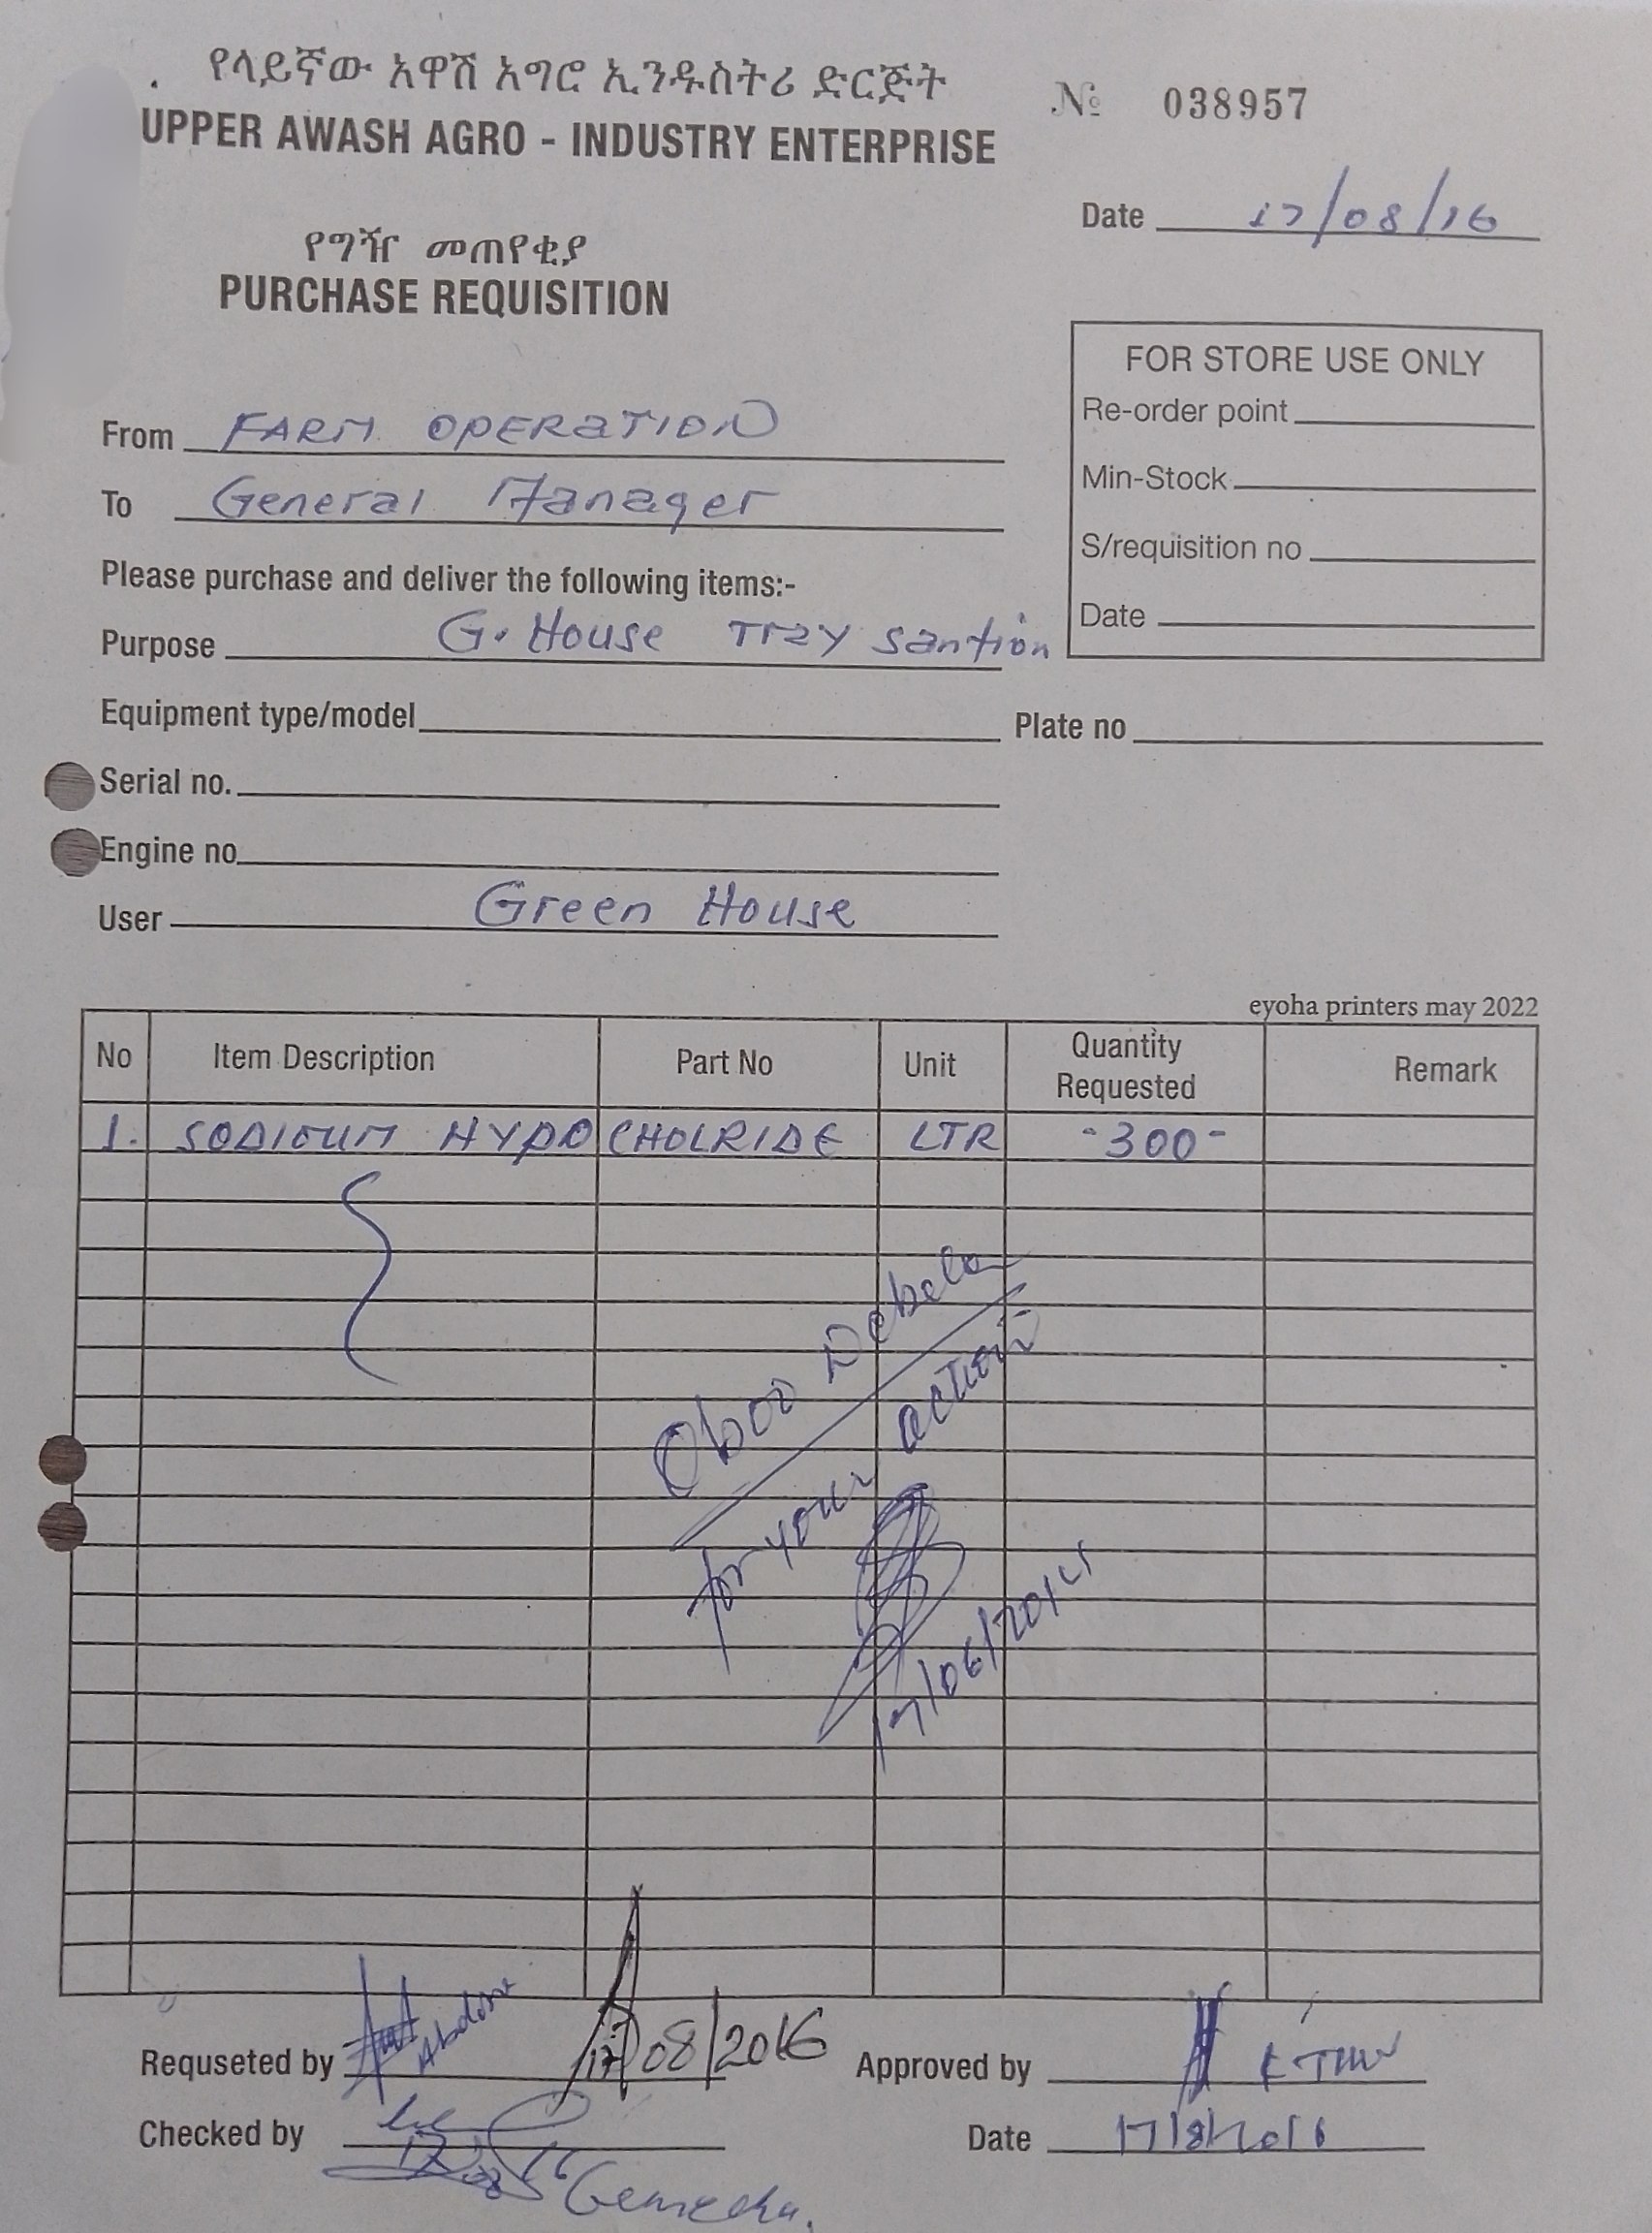 የላይኛው አዋሽ አግሮ ኢንዱስትሪ ድርጅት
UPPER AWASH AGRO - INDUSTRY ENTERPRISE
№ 038957
Date 17/08/16
የግዥ መጠየቂያ
PURCHASE REQUISITION
FOR STORE USE ONLY
Re-order point
Min-Stock
S/requisition no
Date
From FARM OPERATION
To General Manager
Please purchase and deliver the following items:-
Purpose G. House Tray Santion
Equipment type/model
Plate no
Serial no.
Engine no
User Green House
eyoha printers may 2022
No Item Description Part No Unit Quantity Requested Remark
1. SODIOUM HYPO CHOLRIDE LTR -300-
Oboo Debela
for your action
Requseted by Abdona 17/08/2016
Approved by
Checked by
Date 17/8/2016
Gemechu.